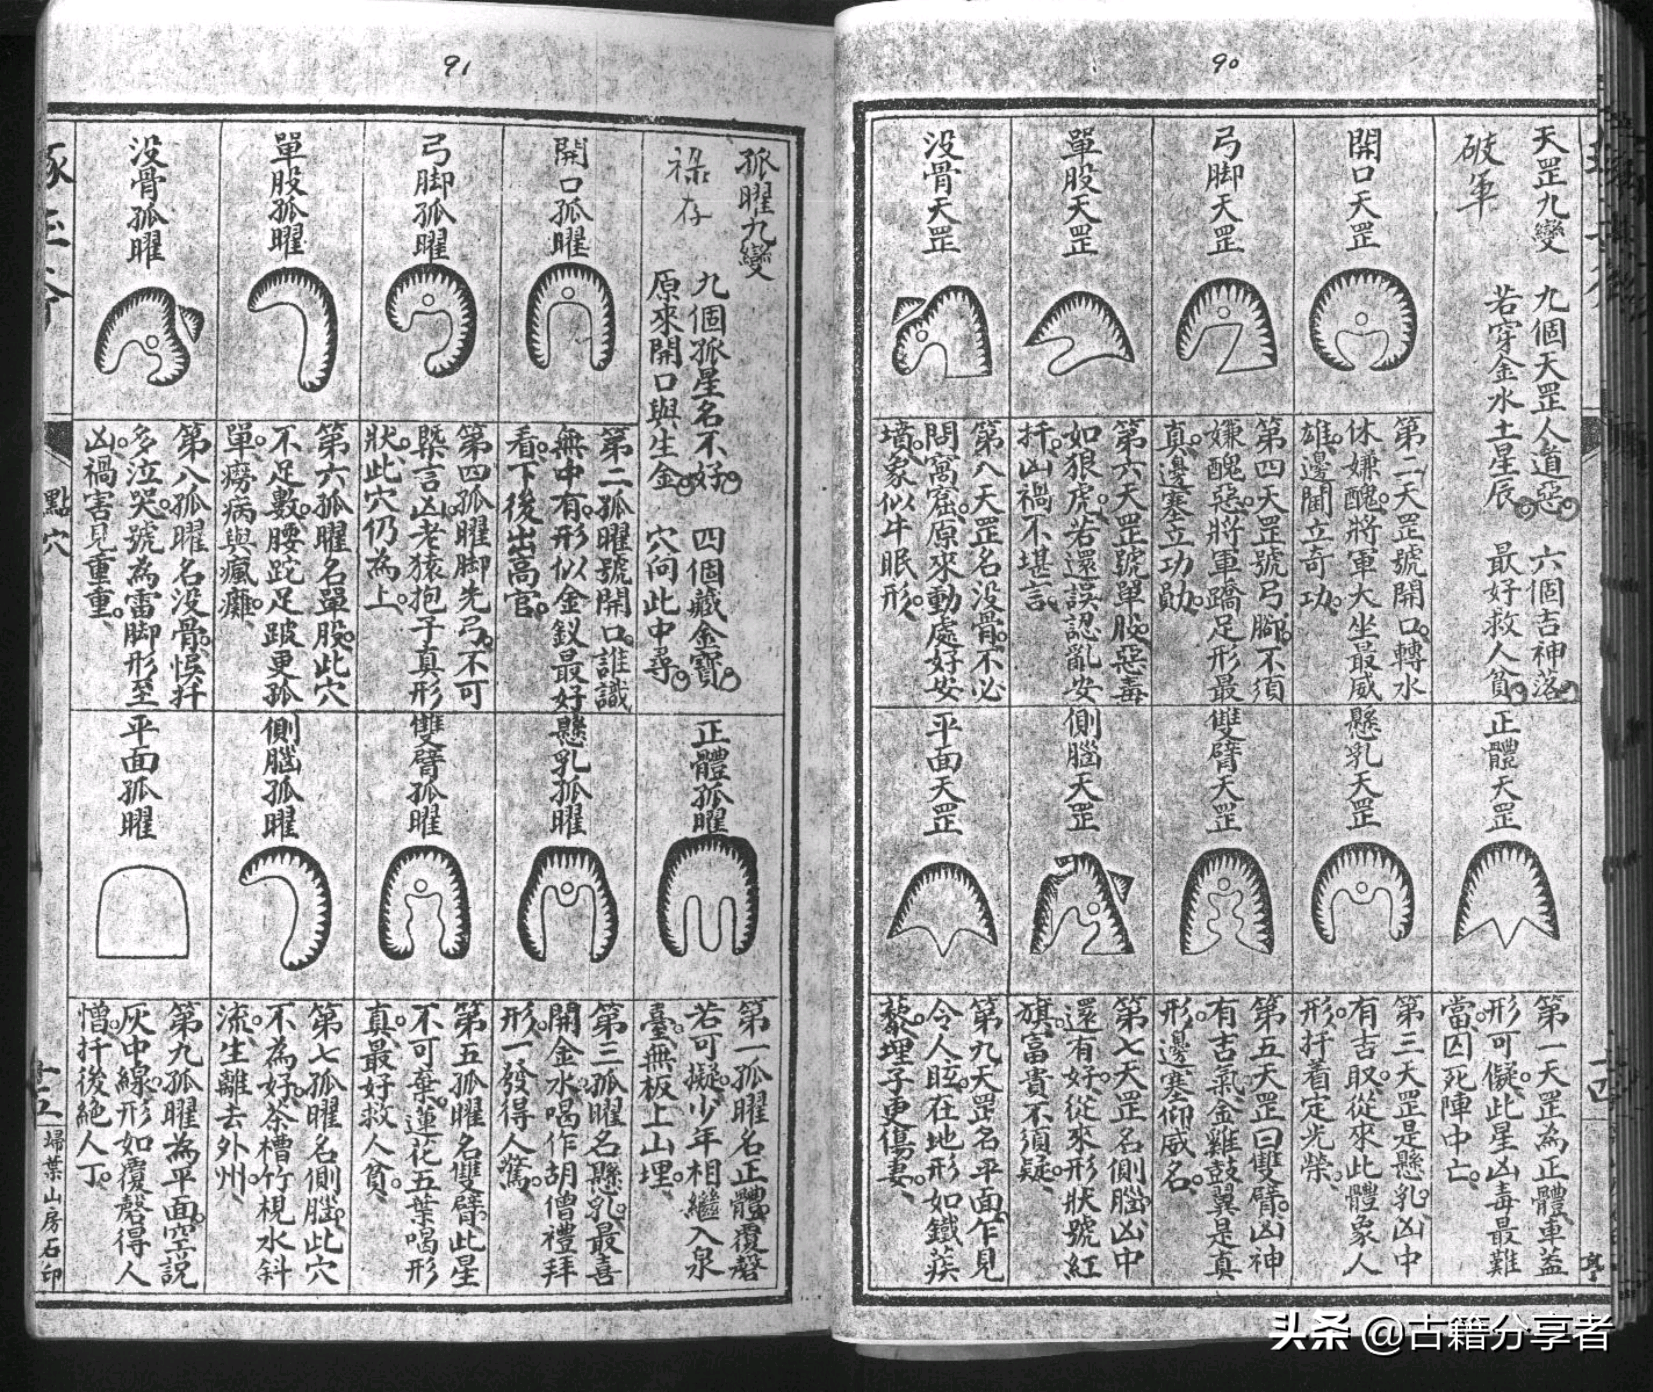 90
天罡九變
破軍
九個天罡人道惡。六個吉神落。
若穿金水土星辰。最好救人貧。
正體天罡
第一天罡為正體車蓋
形可儗。此星凶毒最難
當。囚死陣中亡。
開口天罡
第二天罡號開口。轉水
休嫌醜。將軍大坐最威
雄。邊閫立奇功。
懸乳天罡
第三天罡是懸乳。凶中
有吉取。從來此體象人
形。扦着定光榮。
弓脚天罡
第四天罡號弓腳。不須
嫌醜惡。將軍蹻足形最
真。邊塞立功勛。
雙臂天罡
第五天罡曰雙臂。凶神
有吉氣。金雞鼓翼是真
形。邊塞仰威名。
單股天罡
第六天罡號單股。惡毒
如狼虎。若還誤認亂安
扦。凶禍不堪言。
側腦天罡
第七天罡名側腦。凶中
還有好。從來形狀號紅
旗。富貴不須疑。
没骨天罡
第八天罡名没骨。不必
問窩窟。原來動處好安
墳。象似牛眠形。
平面天罡
第九天罡名平面。乍見
令人眩。在地形如鐵蒺
藜。埋子更傷妻。
91
孤曜九變
祿存
九個孤星名不好。四個藏金寶。
原來開口與生金。穴向此中尋。
正體孤曜
第一孤曜名正體。覆磬
若可擬。少年相繼入泉
臺。無板上山埋。
開口孤曜
第二孤曜號開口。誰識
無中有。形似金釵最好
看。下後出高官。
懸乳孤曜
第三孤曜名懸乳。最喜
開金水。喝作胡僧禮拜
形。一發得人驚。
弓脚孤曜
第四孤曜脚先弓。不可
槩言凶。老猿抱子真形
狀。此穴仍為上。
雙臂孤曜
第五孤曜名雙臂。此星
不可棄。蓮花五葉喝形
真。最好救人貧。
單股孤曜
第六孤曜名單股。此穴
不足數。腰跎足跛更孤
單。癆病與瘋癱。
側腦孤曜
第七孤曜名側腦。此穴
不為好。茶槽竹梘水斜
流。生離去外州。
没骨孤曜
第八孤曜名没骨。悮扦
多泣哭。號為雷脚形至
凶。禍害見重重。
平面孤曜
第九孤曜為平面。空説
灰中線。形如覆磬得人
憎。扦後絶人丁。
點穴
十五
掃葉山房石印
头条 @古籍分享者